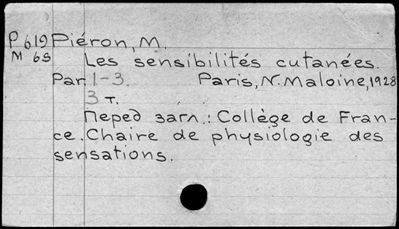 P 619 Piéron, M.
M 65 Les sensibilités cutanées.
Par. 1-3. Paris, N. Maloine, 1928
3 т.
Перед загл.: Collège de Fran-
ce. Chaire de physiologie des
sensations.